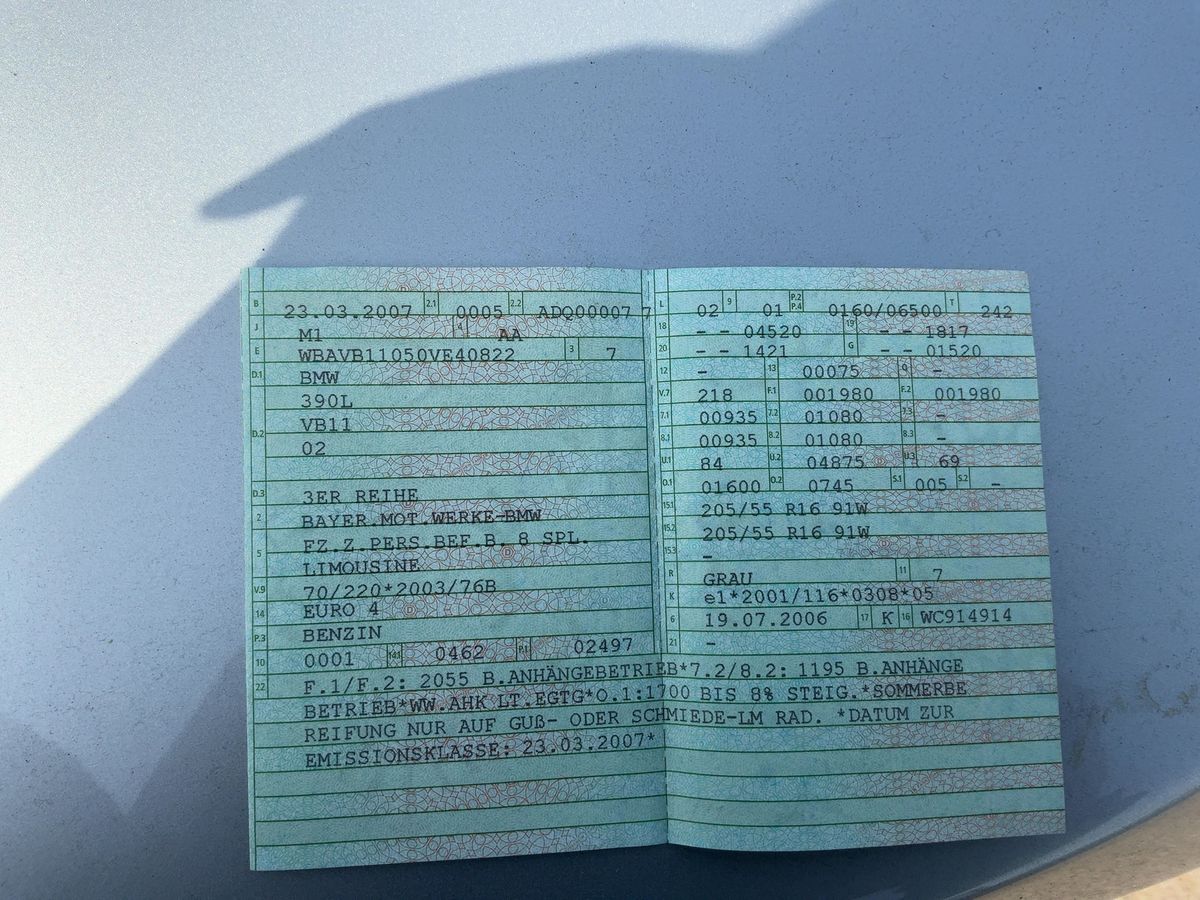 B 23.03.2007 2.1 0005 2.2 ADQ00007 7
J M1 4 AA
E WBAVB11050VE40822 3 7
D.1 BMW
390L
VB11
D.2 02
D.3 3ER REIHE
2 BAYER.MOT.WERKE-BMW
FZ.Z.PERS.BEF.B. 8 SPL.
5 LIMOUSINE
V.9 70/220*2003/76B
14 EURO 4
P.3 BENZIN
10 0001 14.1 0462 P.1 02497
L 02 9 01 P.2 P.4 0160/06500 T 242
18 - - 04520 19 - - 1817
20 - - 1421 G - - 01520
12 - 13 00075 Q -
V.7 218 F.1 001980 F.2 001980
7.1 00935 7.2 01080 7.3 -
8.1 00935 8.2 01080 8.3 -
U.1 84 U.2 04875 U.3 69
O.1 01600 O.2 0745 S.1 005 S.2 -
15.1 205/55 R16 91W
15.2 205/55 R16 91W
15.3 -
R GRAU 11 7
K e1*2001/116*0308*05
6 19.07.2006 17 K 16 WC914914
21 -
22 F.1/F.2: 2055 B.ANHÄNGEBETRIEB*7.2/8.2: 1195 B.ANHÄNGE
BETRIEB*WW.AHK LT.EGTG*O.1:1700 BIS 8% STEIG.*SOMMERBE
REIFUNG NUR AUF GUß- ODER SCHMIEDE-LM RAD. *DATUM ZUR
EMISSIONSKLASSE: 23.03.2007*